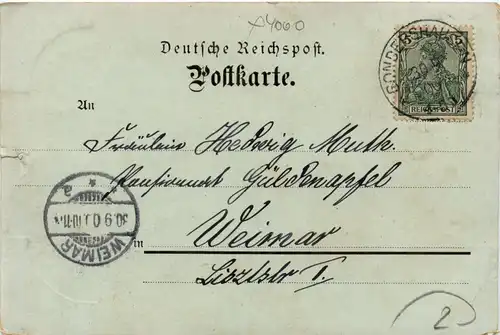 x4060
Deutsche Reichspost.
Postkarte.
SONDERSHAUSEN
REICHSPOST
An
Fräulein Hedwig Muth.
Pensionnat Güldenapfel
WEIMAR
30.9.0
in Weimar
Lisztstr I.
2